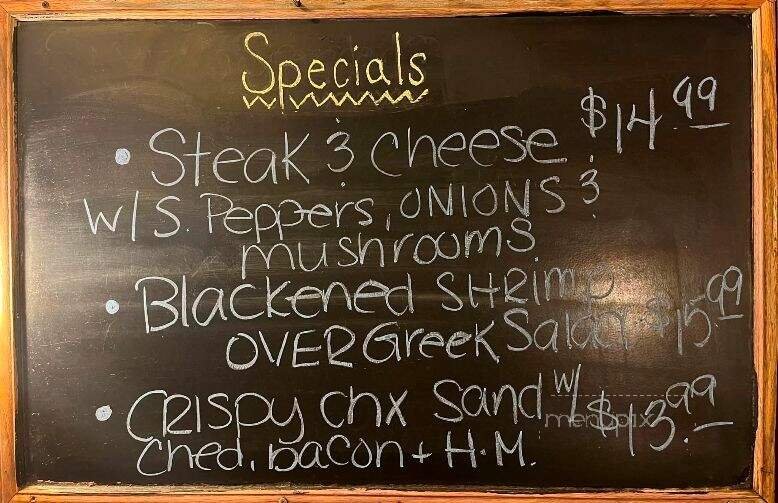 Specials
• Steak & Cheese $14.99
W/S. Peppers, ONIONS &
mushrooms
• Blackened SHRimp
OVER Greek Salad $15.99
• CRISPY Chx Sand W/ $13.99
Ched, bacon + H.M.
menupix